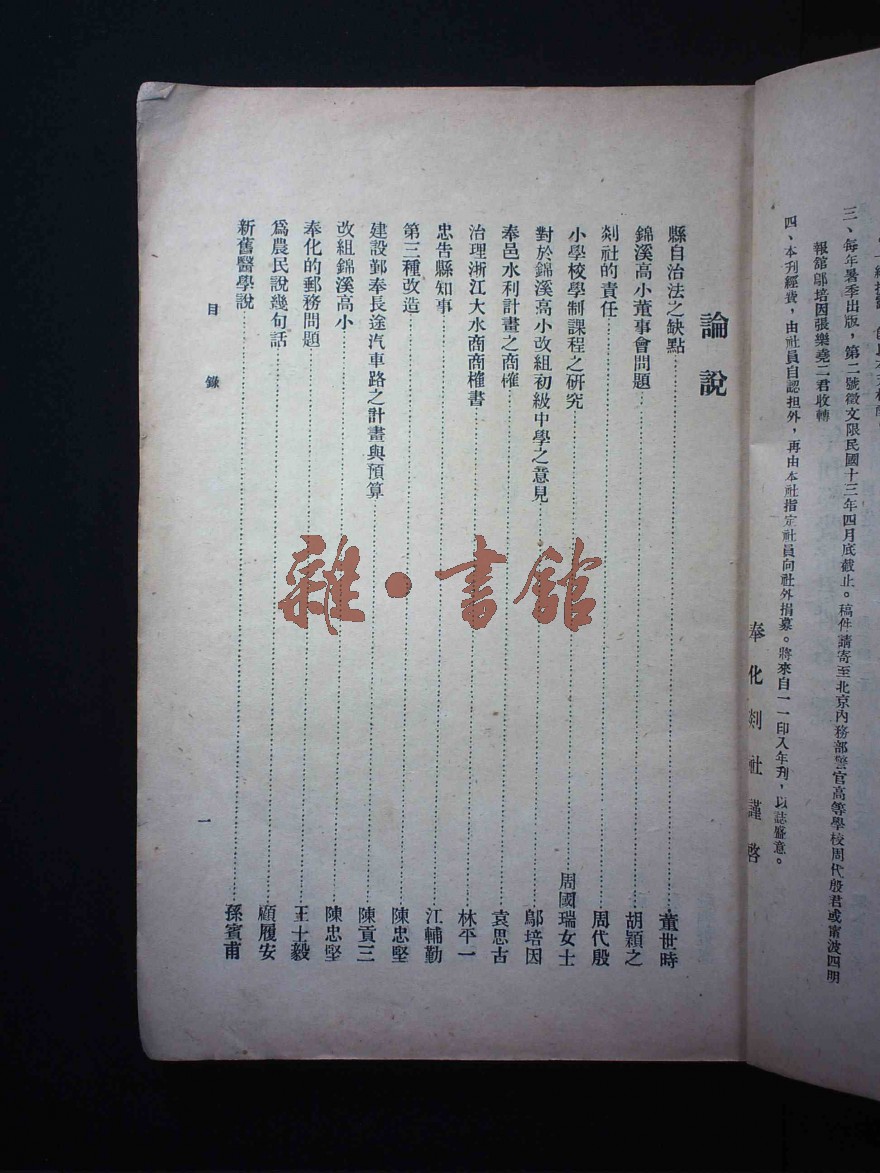 三、每年暑季出版，第二號徵文限民國十三年四月底截止。稿件請寄至北京內務部警官高等學校周代殷君或甯波四明
報舘鄔培因張樂堯二君收轉
四、本刊經費，由社員自認担外，再由本社指定社員向社外捐募。將來自一一印入年刋，以誌盛意。
奉化剡社謹啓
論說
縣自治法之缺點 童世時
錦溪高小董事會問題 胡穎之
剡社的責任 周代殷
小學校學制課程之研究 周國瑞女士
對於錦溪高小改組初級中學之意見 鄔培因
奉邑水利計畫之商榷 袁思古
治理浙江大水商商榷書 林平一
忠告縣知事 江輔勤
第三種改造 陳忠堅
建設鄞奉長途汽車路之計畫與預算 陳貢三
改組錦溪高小 陳忠堅
奉化的郵務問題 王十毅
爲農民說幾句話 顧履安
新舊醫學說 孫賓甫
目錄
一
雜·書館